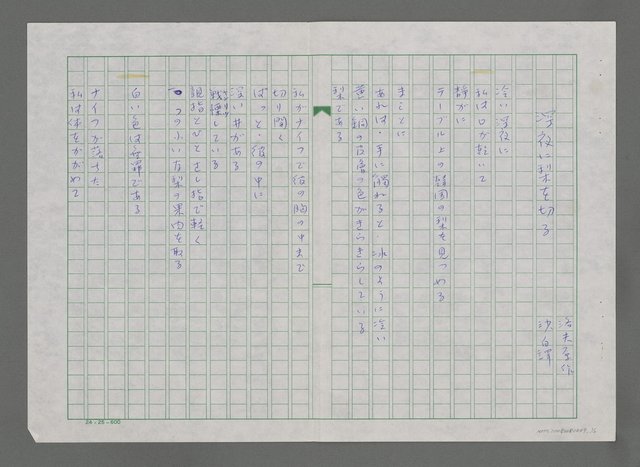 深夜に梨を切る
洛夫原作
沙白譯
冷い深夜に
私は口が乾いて
静かに
テーブル上の韓国の梨を見つめる
まことに
あれは・手に觸れると・氷のように冷い
黄い銅の皮膚の色がきらきらしている
梨である
私がナイフで彼の胸の中まで
切り開く
ぱっと・彼の中に
深い井がある
戦慄している
親指とひとさし指で軽く
一つの小い梨の果肉を取る
白い色は無罪である
ナイフが落ちた
私は体をかがめて
24×25=600